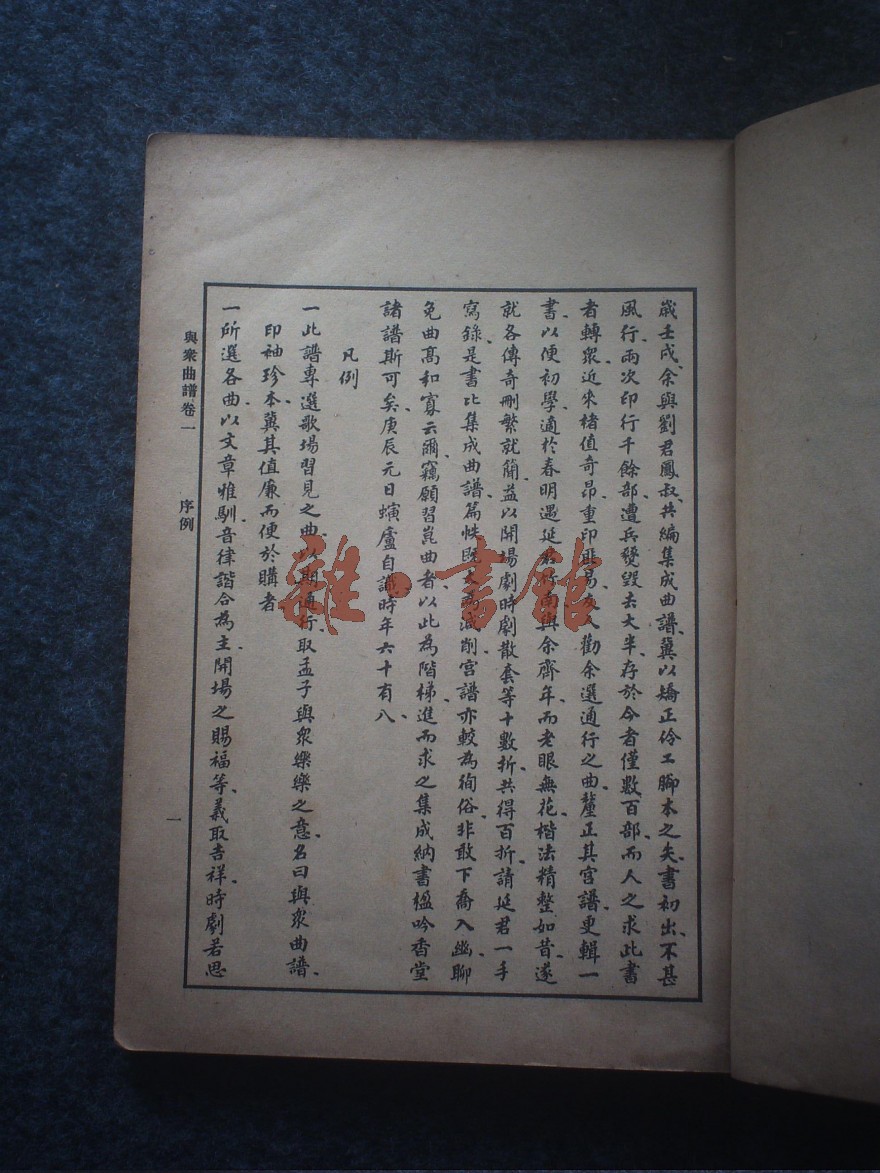 歲壬戌、余與劉君鳳叔、共編集成曲譜、冀以矯正伶工腳本之失、書初出、不甚
風行、兩次印行千餘部、遭兵燹毀去大半、存於今者僅數百部、而人之求此書
者轉眾、近來楮值奇昂、重印匪易、友人勸余選通行之曲、釐正其宮譜、更輯一
書、以便初學、適於春明遇延君 與余齊年、而老眼無花、楷法精整如昔、遂
就各傳奇刪繁就簡、益以開場劇時劇散套等十數折、共得百折、請延君一手
寫錄、是書比集成曲譜、篇帙既 減削、宮譜亦較為徇俗、非敢下喬入幽、聊
免曲高和寡云爾、竊願習崑曲者、以此為階梯、進而求之集成納書楹吟香堂
諸譜斯可矣、庚辰元日螾廬自識時年六十有八、
凡例
一此譜專選歌場習見之曲、以期通行、取孟子與眾樂樂之意、名曰與眾曲譜、
印袖珍本、冀其值廉而便於購者
一所選各曲、以文章雅馴、音律諧合為主、開場之賜福等、義取吉祥、時劇若思
與眾曲譜卷一
序例
一
雜·書館